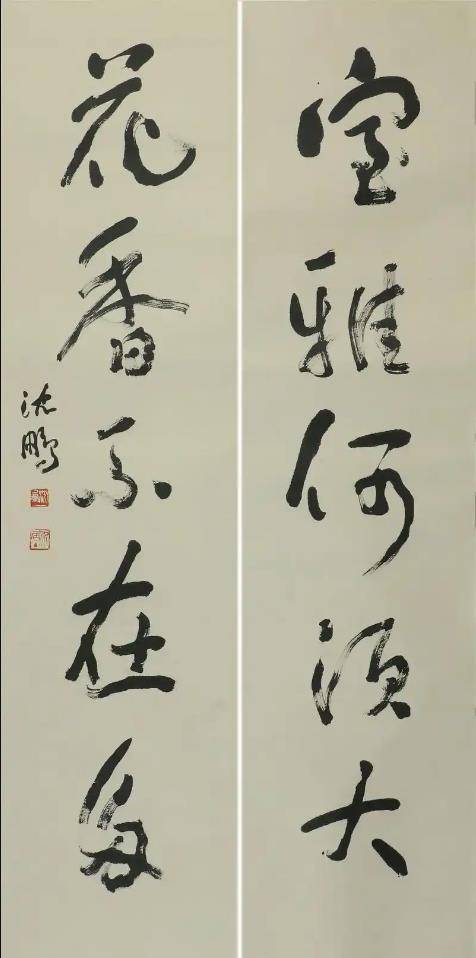 室雅何须大
花香不在多
沈鹏